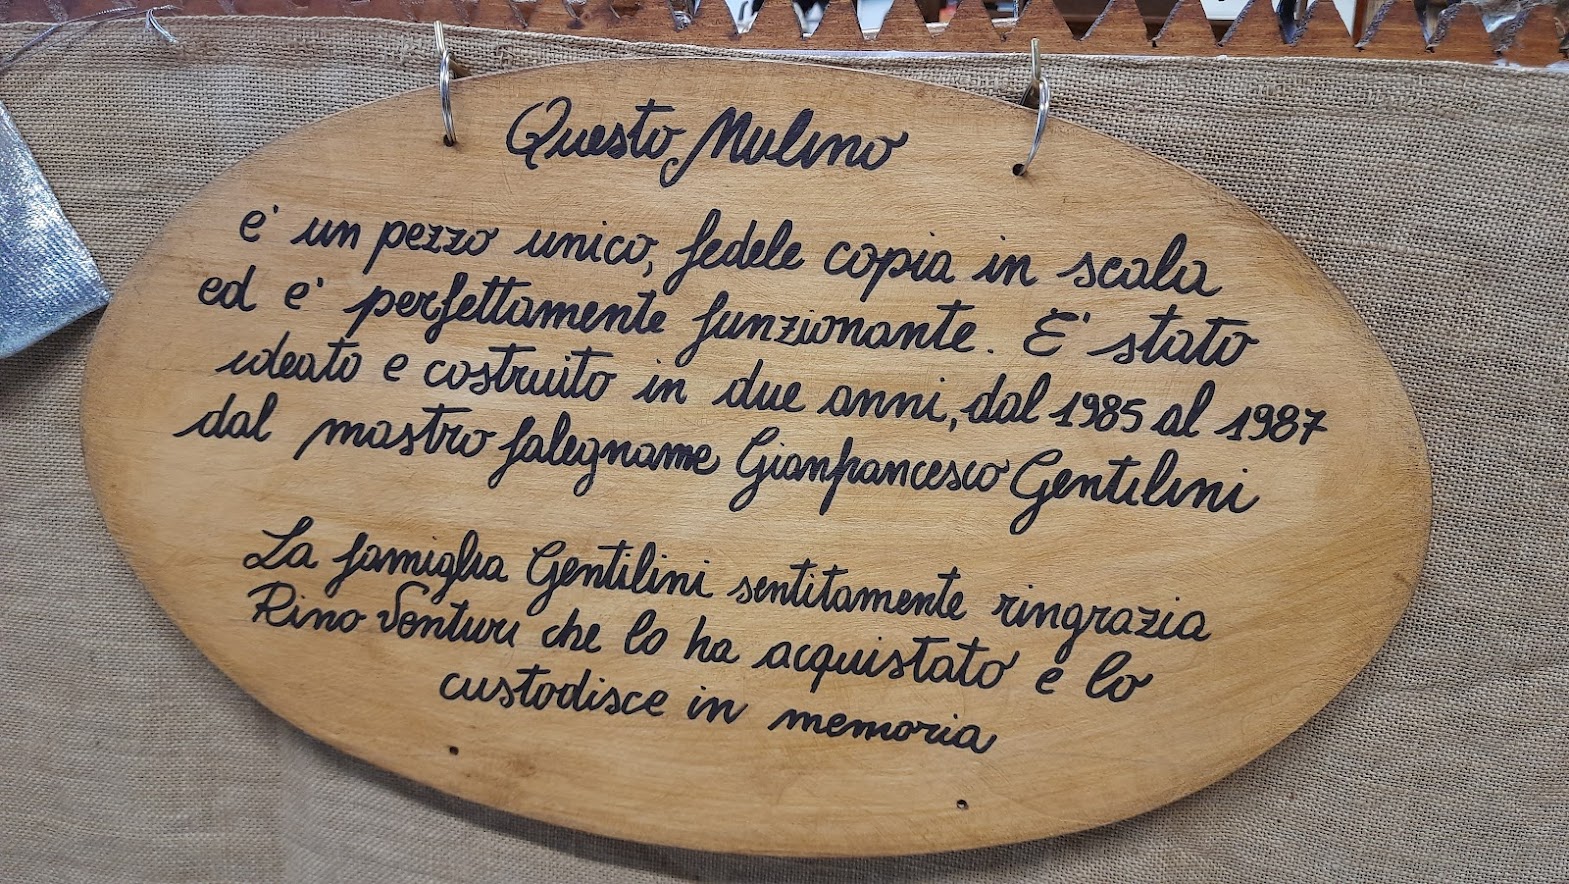 Questo Mulino
e' un pezzo unico, fedele copia in scala
ed e' perfettamente funzionante. E' stato
ideato e costruito in due anni, dal 1985 al 1987
dal mastro falegname Gianfrancesco Gentilini
La famiglia Gentilini sentitamente ringrazia
Rino Venturi che lo ha acquistato e lo
custodisce in memoria